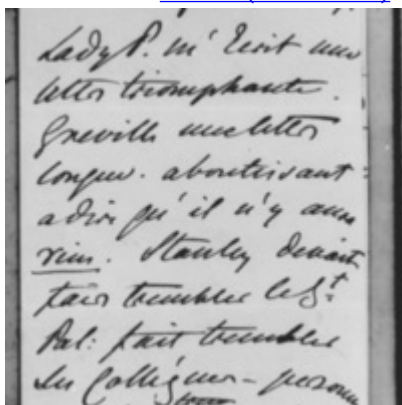 Lady P. m'écrit une
lettre triomphante.
Greville une lettre
longue. aboutissant
a dire qu'il n'y aura
rien. Stanley devait
faire trembler le
Pal: fait trembler
les Collègues - personne